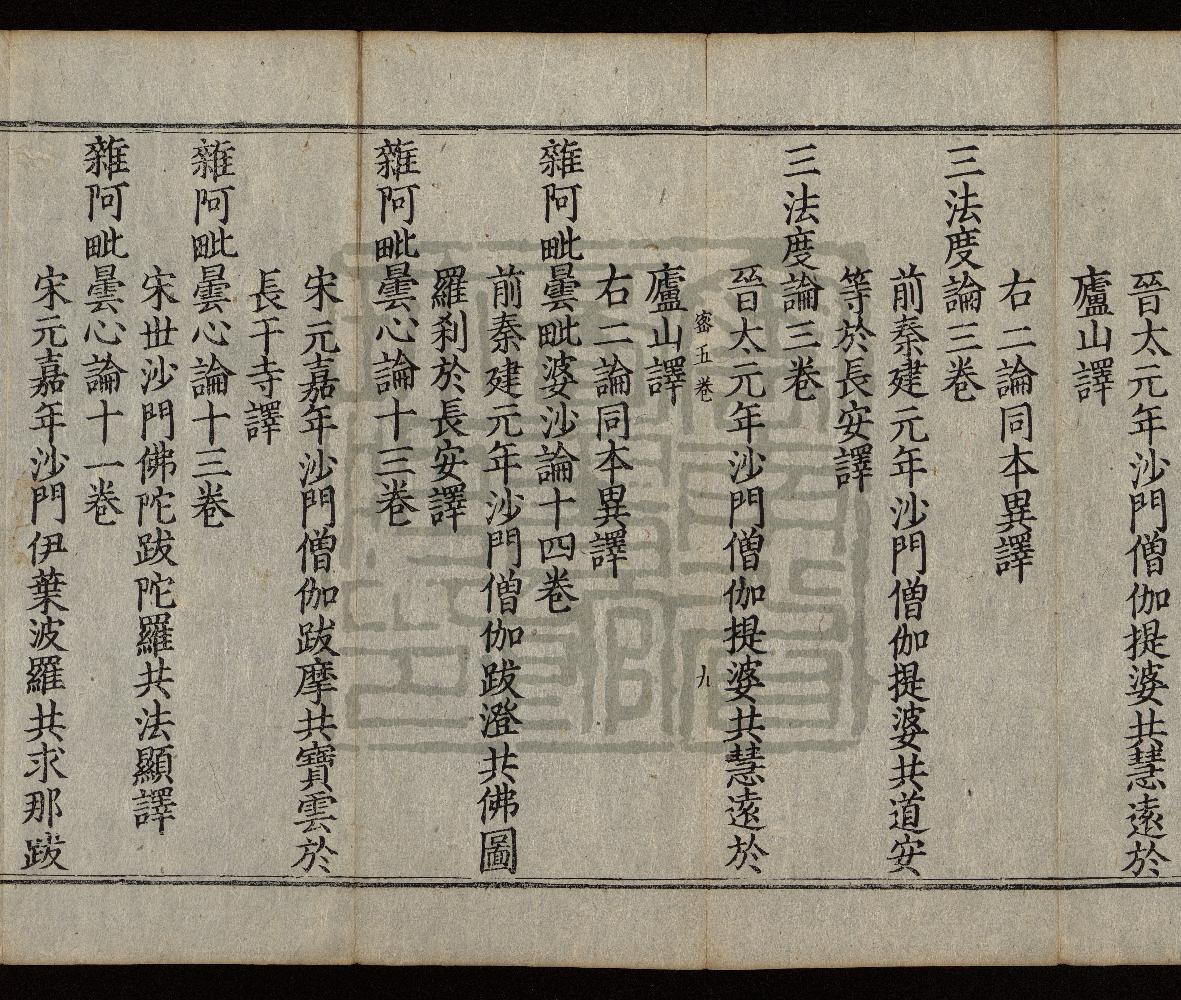 晉太元年沙門僧伽提婆共慧遠於
廬山譯
右二論同本異譯
三法度論三卷
前秦建元年沙門僧伽提婆共道安
等於長安譯
三法度論三卷
晉太元年沙門僧伽提婆共慧遠於
密五卷 九
廬山譯
右二論同本異譯
雜阿毗曇毗婆沙論十四卷
前秦建元年沙門僧伽跋澄共佛圖
羅刹於長安譯
雜阿毗曇心論十三卷
宋元嘉年沙門僧伽跋摩共寶雲於
長干寺譯
雜阿毗曇心論十三卷
宋世沙門佛陀跋陀羅共法顯譯
雜阿毗曇心論十一卷
宋元嘉年沙門伊葉波羅共求那跋